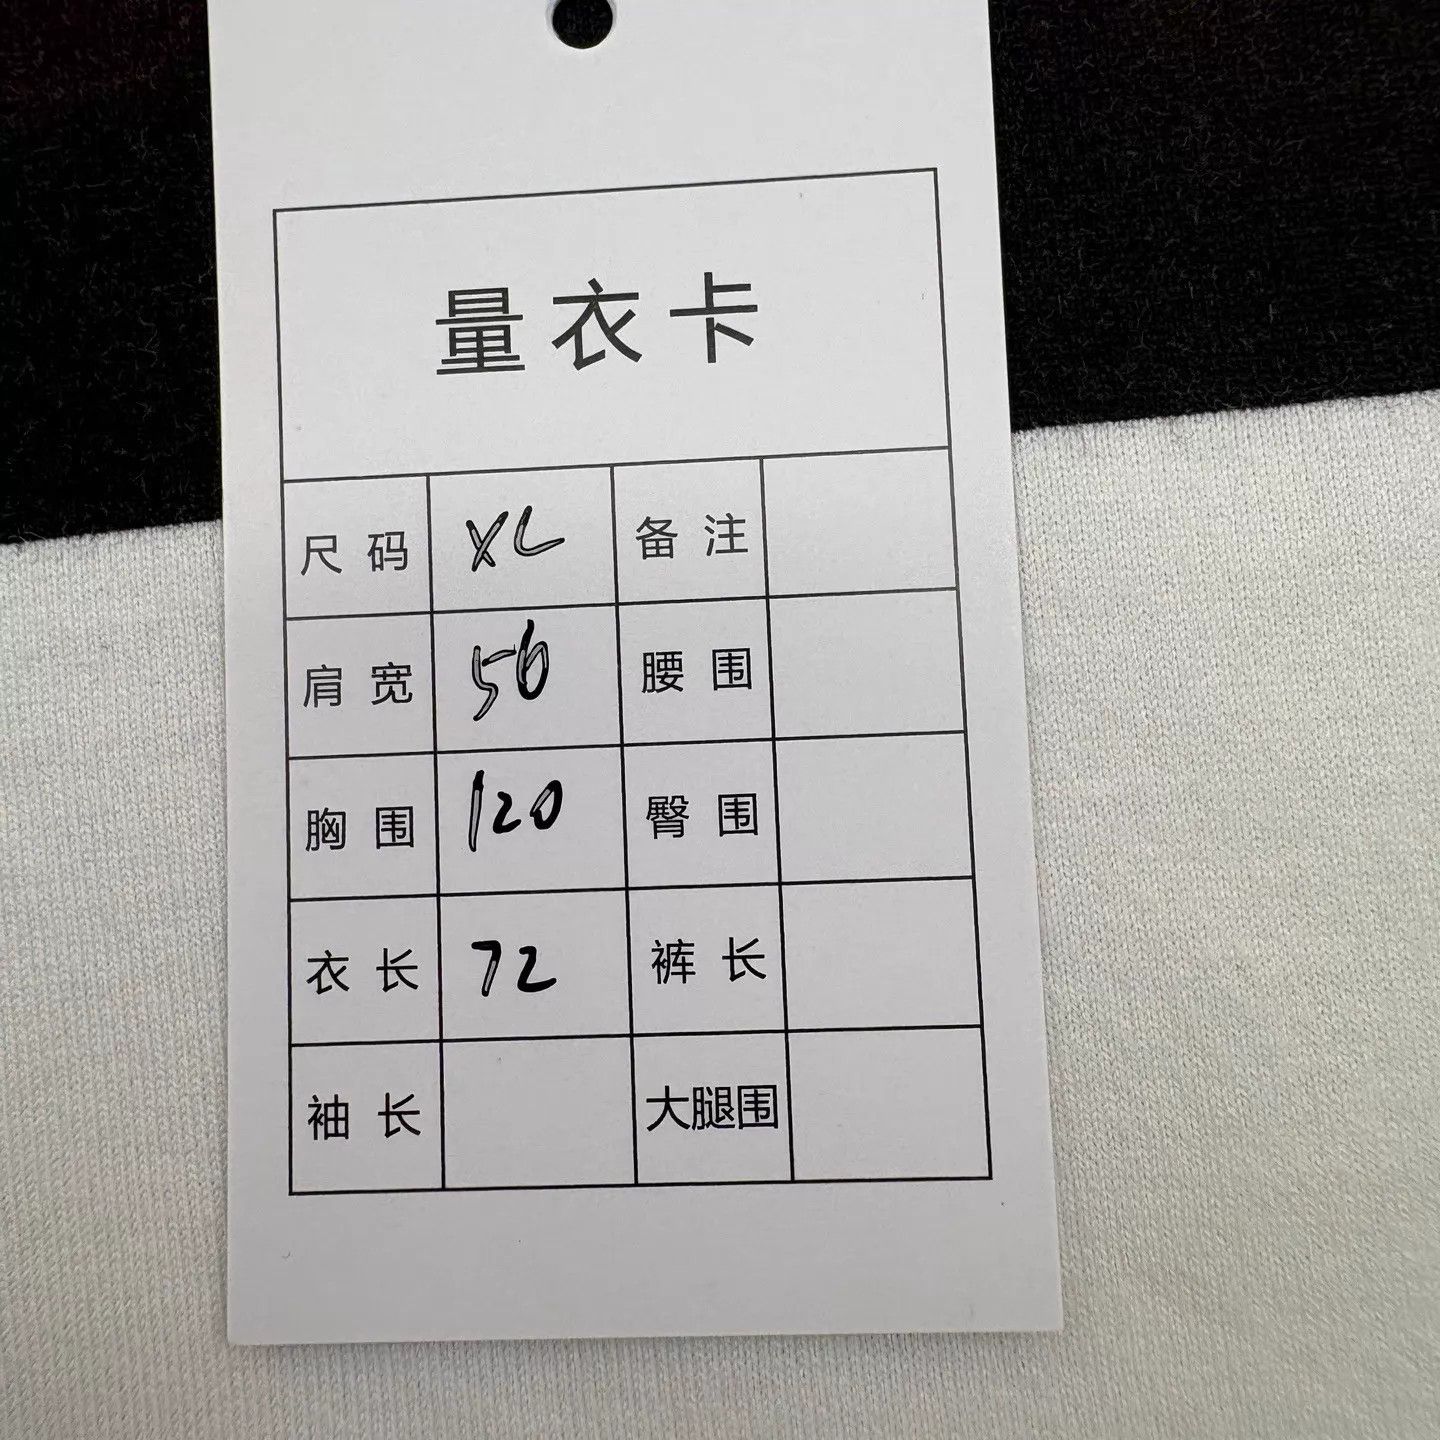 量衣卡
尺码 XL 备注
肩宽 56 腰围
胸围 120 臀围
衣长 72 裤长
袖长 大腿围